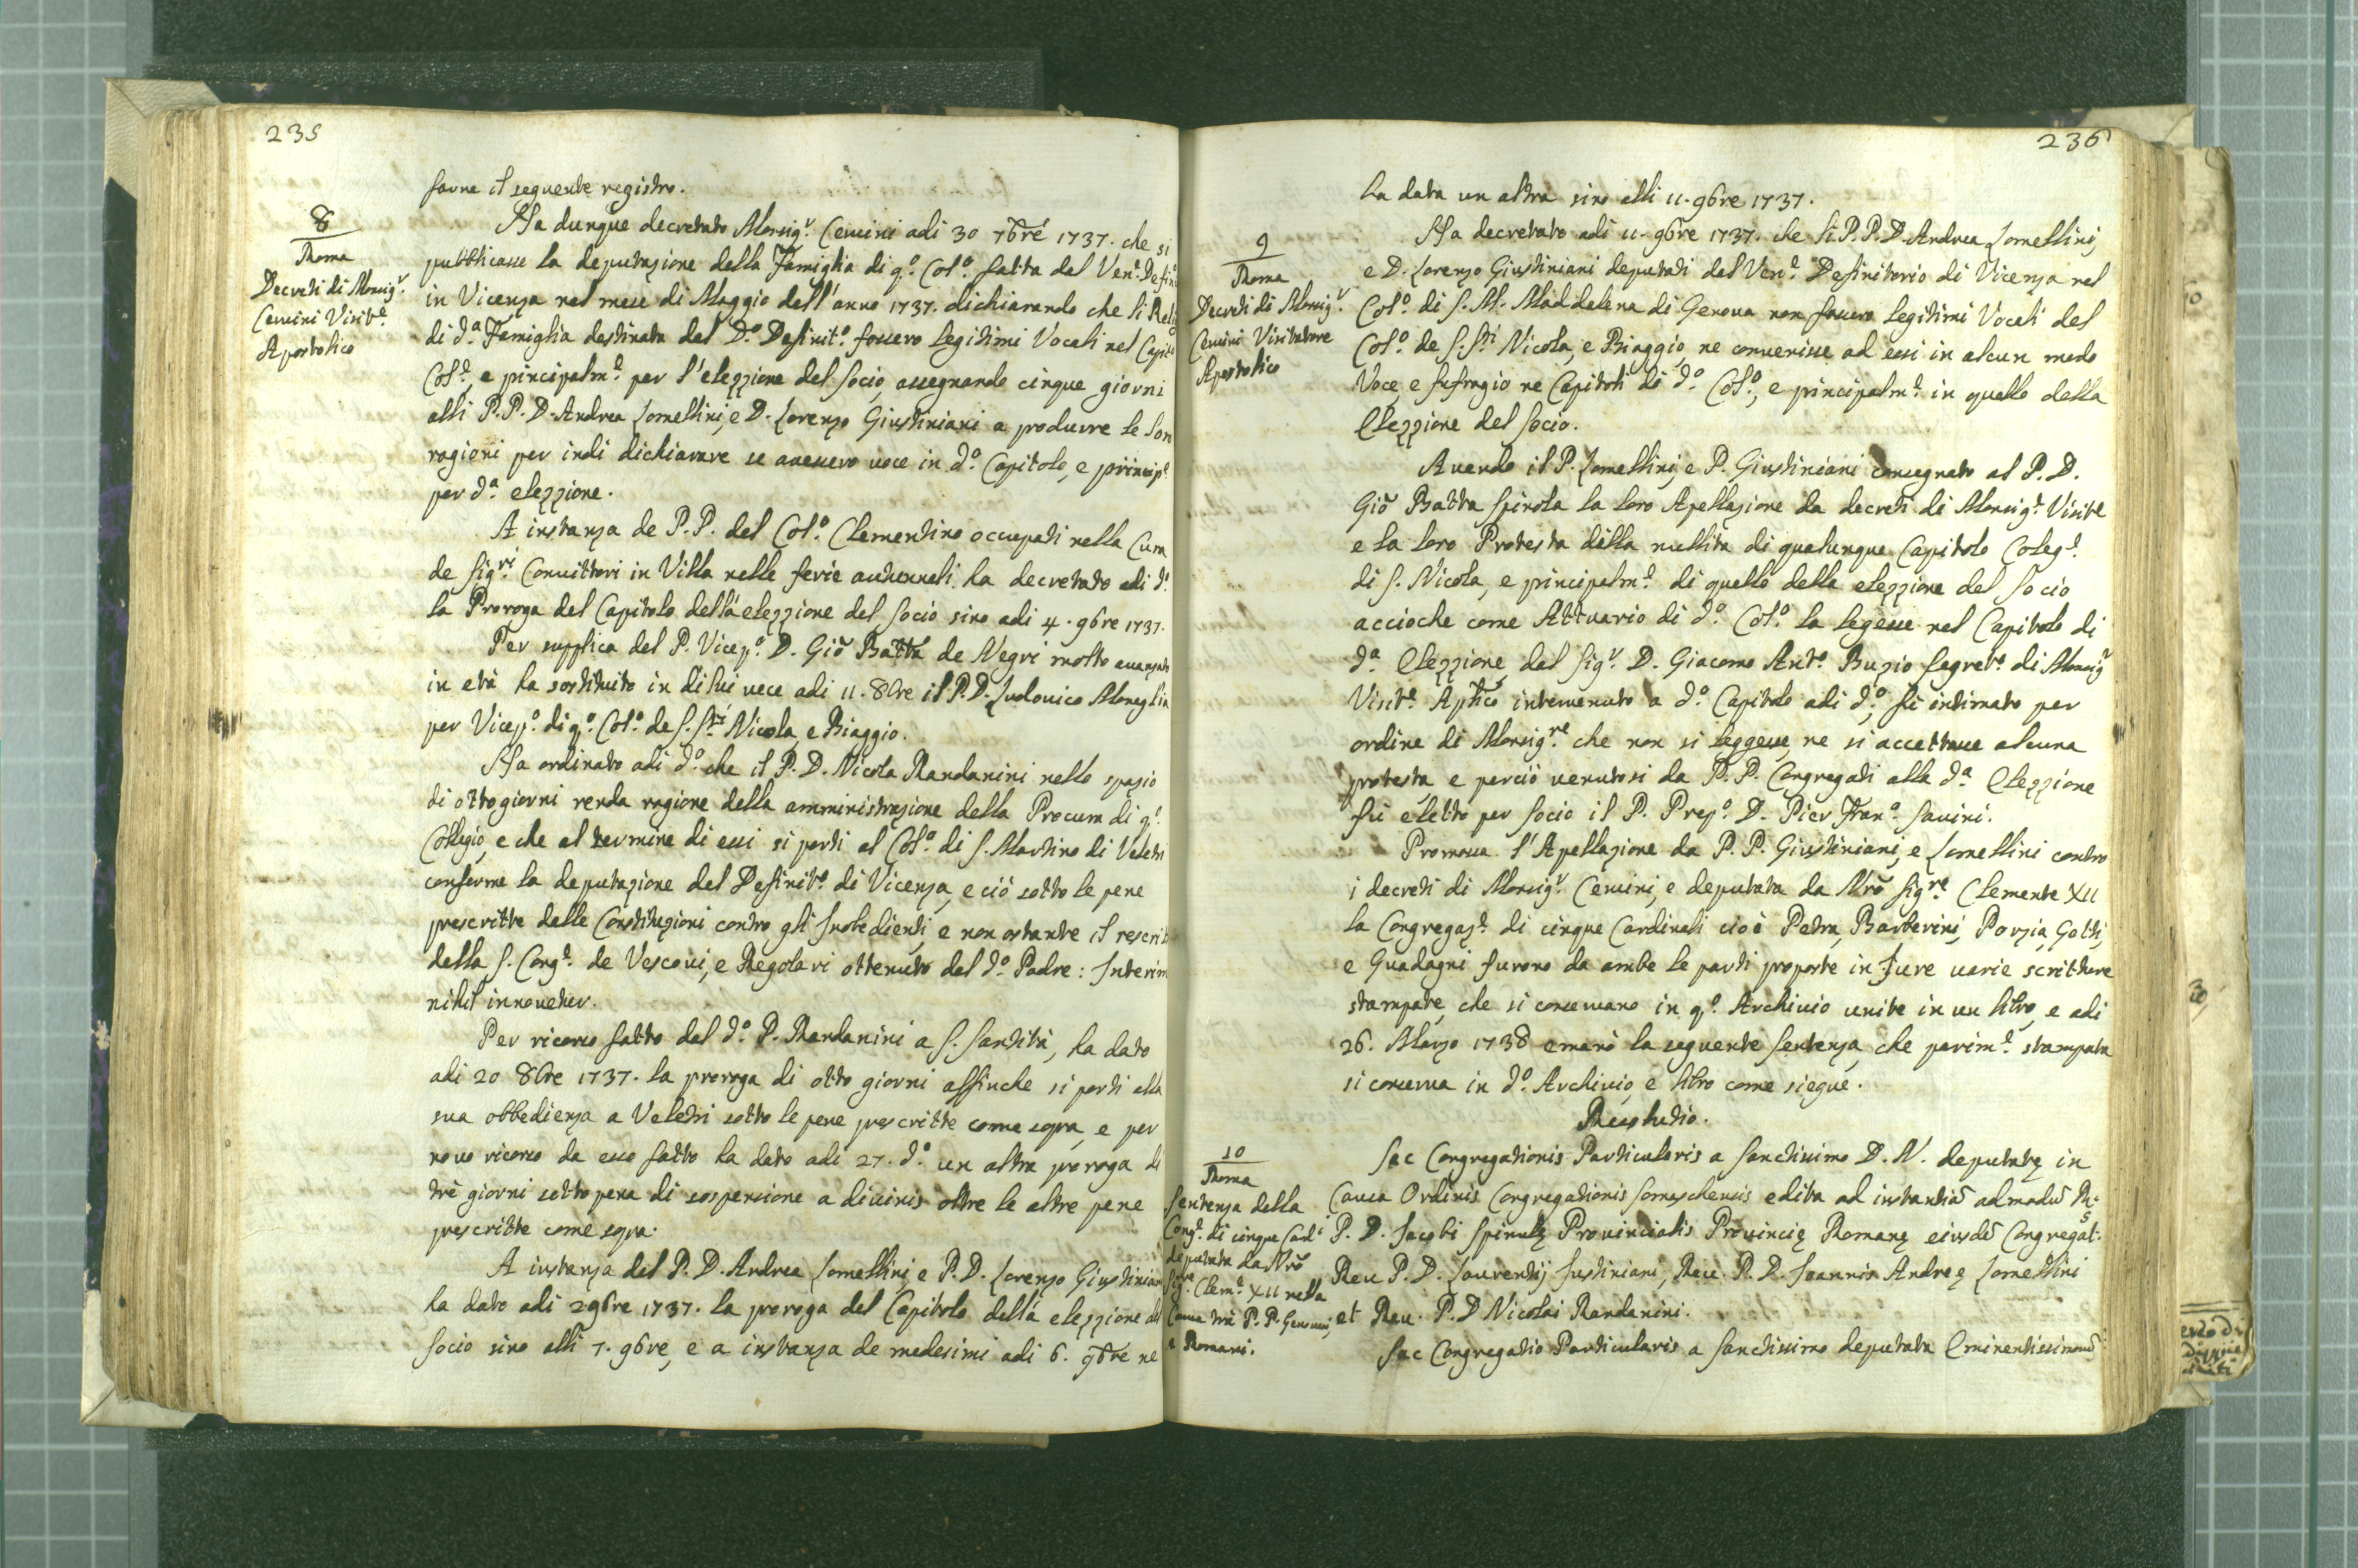 235
farne il seguente registro.
8
Roma
Decreti di Monsig.r
Cervini Visit.e
Apostolico
Ha dunque decretato Monsig.r Cervini adi 30 7bre 1737. che si
pubblicasse la deputazione della Famiglia di q.o Col.o fatta dal Ven.e Defin.o
in Vicenza nel mese di Maggio dell'anno 1737. dichiarando che li Relig
di d.a Famiglia destinata dal D.o Definit.o fossero legitimi Vocali nel Capit.o
Col.e, e principalm.e per l'elezzione del Socio, assegnando cinque giorni
alli P.P. D. Andrea Lomellini, e D. Lorenzo Giustiniani a produrre le loro
ragioni per indi dichiarare se avessero voce in d.o Capitolo, e princip.e
per d.a elezzione.
A instanza de P.P. del Col.o Clementino occupati nella Cura
de Sig.ri Convittori in Villa nelle ferie autunnali ha decretato adi d.o
la Proroga del Capitolo della elezzione del Socio sino adi 4. 9bre 1737.
Per supplica del P. Vicep.o D. Gio Batta de Negri molto avanzato
in età ha sostituito in di lui vece adi 11. 8bre il P.D. Ludovico Moneglia
per Vicep.o di q.o Col.o de S.Sti Nicola, e Biaggio.
Ha ordinato adi d.o che il P.D. Nicola Randanini nello spazio
di otto giorni renda ragione della amministrazione della Procura di q.o
Collegio, e che al termine di essi si porti al Col.o di S. Martino di Veletri
conforme la deputazione del Definit.o di Vicenza, e ciò sotto le pene
prescritte dalle Constituzioni contro gli Inobedienti, e non ostante il rescrit
della S. Cong.e de Vescovi, e Regolari ottenuto dal d.o Padre: Interim
nihil innovetur.
Per ricorso fatto dal d.o P. Randanini a S. Santità, ha dato
adi 20 8bre 1737. la proroga di otto giorni affinche si porti alla
sua obbedienza a Veletri sotto le pene prescritte come sopra, e per
novo ricorso da esso fatto ha dato adi 27. d.o un altra proroga di
trè giorni sotto pena di sospensione a divinis oltre le altre pene
prescritte come sopra.
A instanza del P.D. Andrea Lomellini, e P.D. Lorenzo Giustinian
ha dato adi 2 9bre 1737. la proroga del Capitolo della elezzione del
Socio sino alli 7. 9bre, e a instanza de medesimi adi 6. 9bre ne
236
ha data un altra sino alli 11. 9bre 1737.
9
Roma
Decreti di Monsig.r
Cervini Visitatore
Apostolico
Ha decretato adi 11. 9bre 1737. che li P.P. D. Andrea Lomellini,
e D. Lorenzo Giustiniani deputati dal Ven.e Definitorio di Vicenza nel
Col.o di S. M. Maddalena di Genova non fossero legitimi Vocali del
Col.o de S.Sti Nicola, e Biaggio, ne convenisse ad essi in alcun modo
Voce, e sufragio ne Capitoli di d.o Col.o, e principalm.e in quello della
Elezzione del Socio.
Avendo il P. Lomellini, e P. Giustiniani consegnato al P. D.
Gio Batta Spinola la loro Apellazione da decreti di Monsig.r Visit.e
e la loro Protesta della nullità di qualunque Capitolo Coleg.e
di S. Nicola, e principalm.e di quello della elezzione del Socio
accioche come Attuario di d.o Col.o la legesse nel Capitolo di
d.a Elezzione, dal Sig.r D. Giacomo Ant.o Buzio Segret.o di Monsig.r
Visit.e Aptico intervenuto a d.o Capitolo adi d.o, fù intimato per
ordine di Monsig.re che non si leggesse, ne si accettasse alcuna
protesta, e perciò venutosi da P.P. Congregati alla d.a Elezzione
fù eletto per Socio il P. Prep.o D. Pier Fran.o Savini.
Promossa l'Apellazione da P.P. Giustiniani, e Lomellini contro
i decreti di Monsig.r Cervini, e deputata da Nro Sig.re Clemente XII
la Congregaz.e di cinque Cardinali cioè Petra, Barberini, Porzia, Gotti,
e Guadagni furono da ambe le parti proposte in Jure varie scritture
stampate, che si conservano in q.o Archivio unite in un libro, e adi
26. Marzo 1738 emanò la seguente Sentenza, che parim.e stampata
si conserva in d.o Archivio, e libro come siegue.
Resolutio.
10
Roma
Sentenza della
Cong.e di cinque Card.i
deputata da Nro
Sig.re Clem.e XII nella
Causa trà P.P. Genovesi,
e Romani.
Sac Congregationis Particularis a Sanctissimo D. N. deputatę in
Causa Ordinis Congregationis Somaschensis edita ad instantiã admodũ R.s
P. D. Jacobi Spinulę Provincialis Provincię Romanę eiusdẽ Congregat.
Rev P. D. Laurentij Justiniani, Rev. P. D. Joannis Andreę Lomellini
et Rev. P. D Nicolai Randanini.
Sac Congregatio Particularis a Sanctissimo deputata Eminentissimorũ